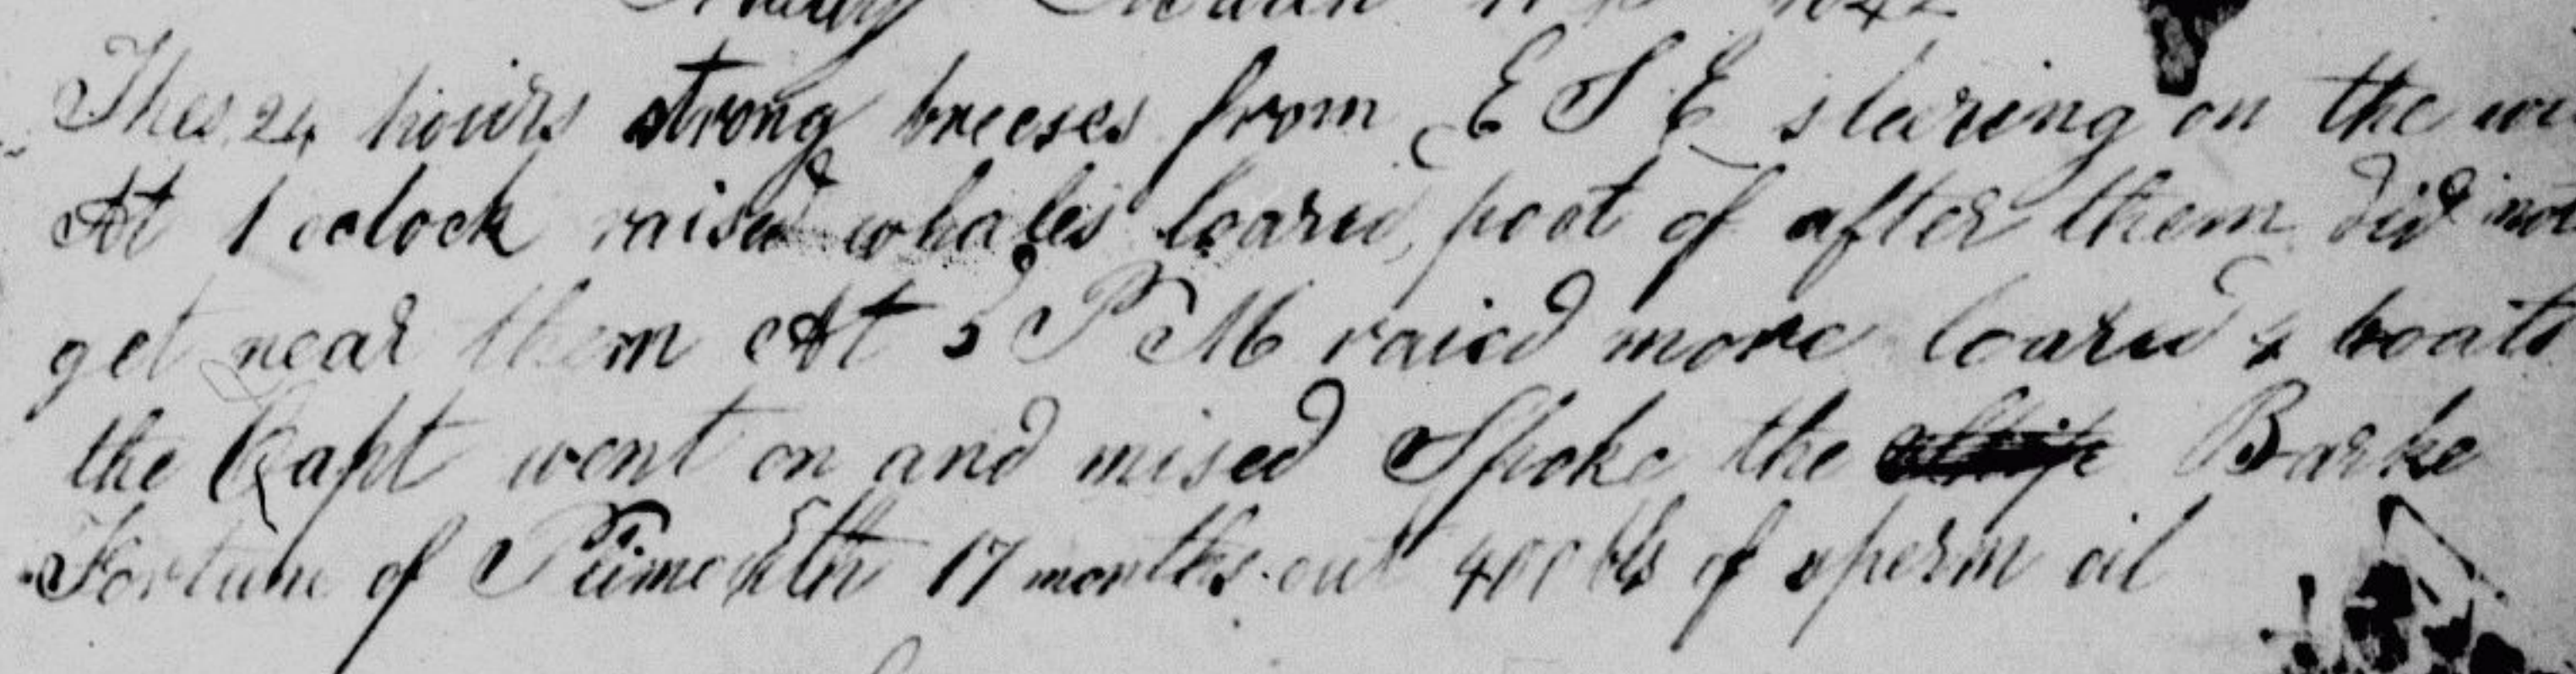 March 1842
Thes 24 hours strong breeses from E S E steering on the
At 1 oclock raised whales loared boat of after them did not
get near them At 5 P M raied more loared 4 boats
the Capt went on and mised Spoke the ship Barke
Fortune of Plimouth 17 months out 400 bls of sperm oil